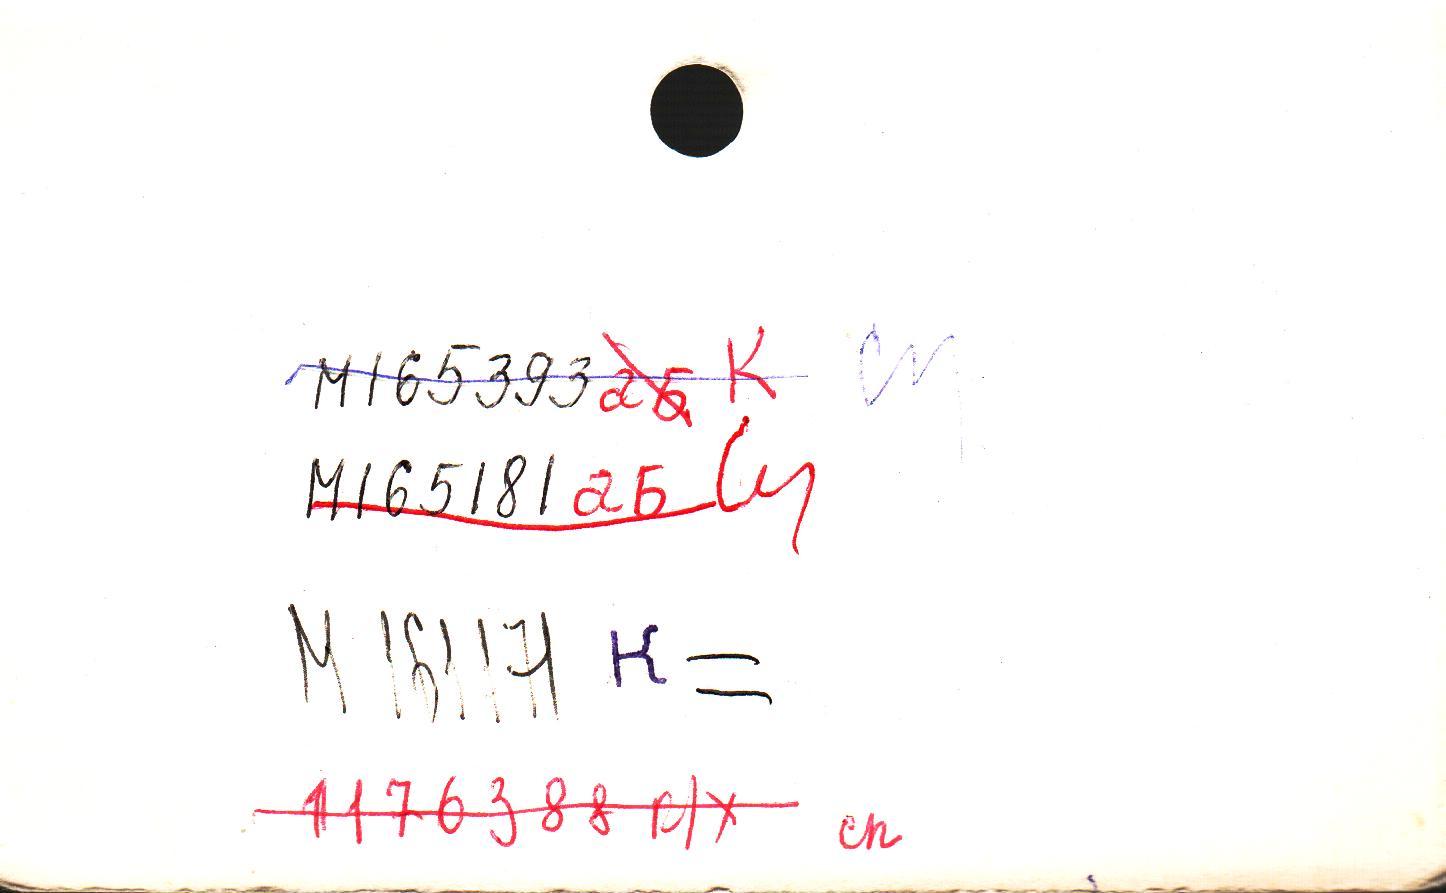 М165393 аб К
М165181 аб Сп
М 161171 К =
1176388 р/х сп